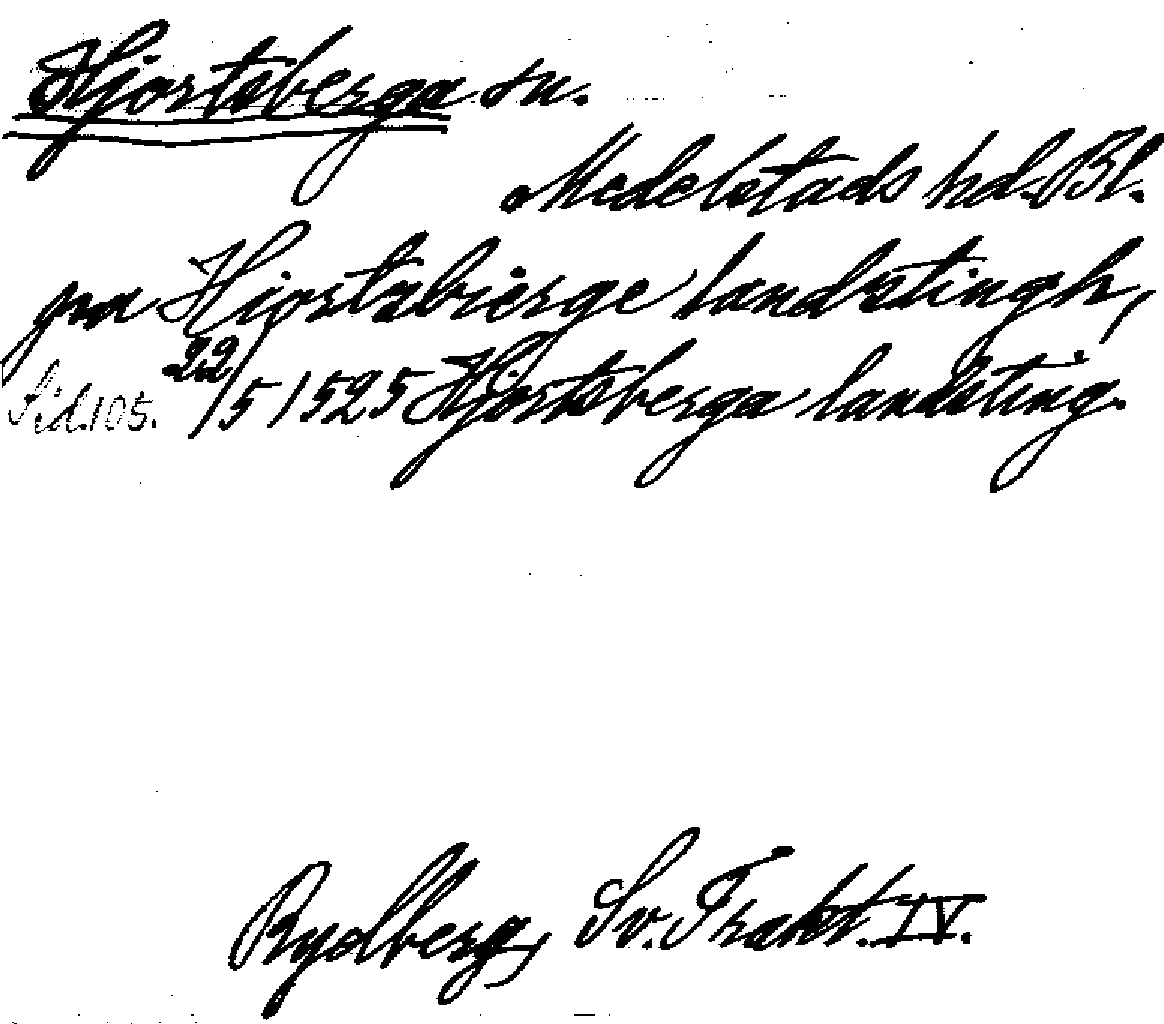 Hjortsberga sn.
Medelstads hd. Bl.
pa Hiortzbierge landztingh,
Sid. 105. 22/5 1525 Hjortsberga landsting.
Rydberg, Sv. Trakt. IV.